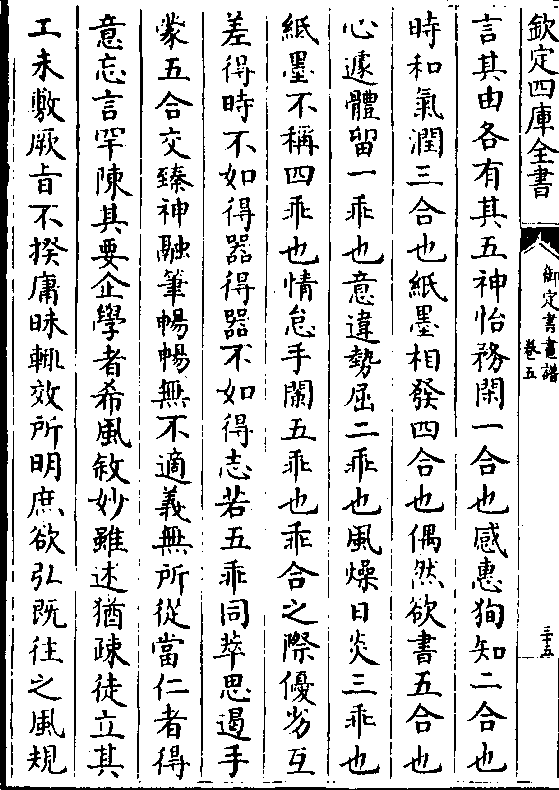 欽定四庫全書
御定書畫譜
卷五
三十五
言其由各有其五神怡務閑一合也感惠狥知二合也
時和氣潤三合也紙墨相發四合也偶然欲書五合也
心遽體留一乖也意違勢屈二乖也風燥日炎三乖也
紙墨不稱四乖也情怠手闌五乖也乖合之際優劣互
差得時不如得器得器不如得志若五乖同萃思遏手
蒙五合交臻神融筆暢暢無不適蒙無所從當仁者得
意忘言罕陳其要企學者希風敘妙雖述猶疎徒立其
工未敷厥旨不揆庸昧輒效所明庶欲弘既往之風規